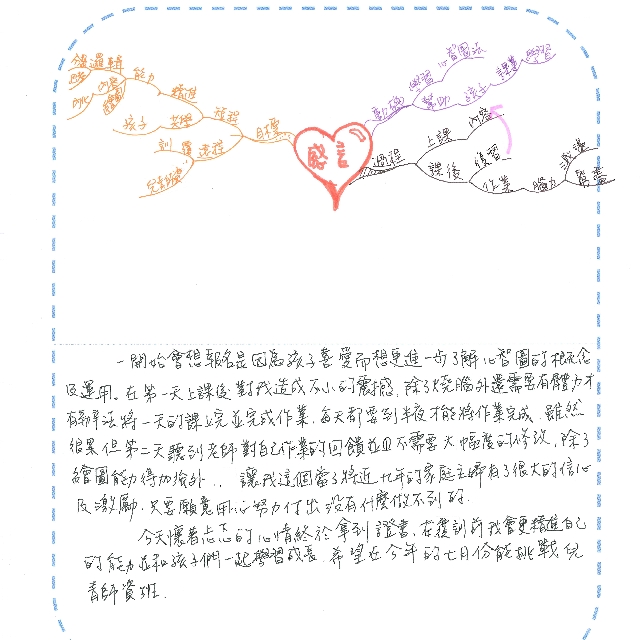 邏輯
能力
內容
繪圖
精進
孩子
共學
旅程
目標
複
訓
課程
感言
動機
學習
心智圖法
幫助
孩子
課業
學習
過程
上課
內容
課後
複習
作業
腦力
激盪
一開始會想報名是因為孩子喜愛而想更進一步了解心智圖的概念
及運用。在第一天上課後對我造成不小的震撼,除了燒腦外還需要有體力才
有辦法將一天的課上完並完成作業,每天都要到半夜才能將作業完成,雖然
很累但第二天聽到老師對自己作業的回饋並且不需要大幅度的修改,除了
繪圖能力得加強外..讓我這個當了將近九年的家庭主婦有了很大的信心
及激勵,只要願意用心努力付出沒有什麼做不到的.
今天懷著忐忑的心情終於拿到證書,在複訓前我會更精進自己
的能力並和孩子們一起學習成長,希望在今年的七月份能挑戰兒
青師資班.